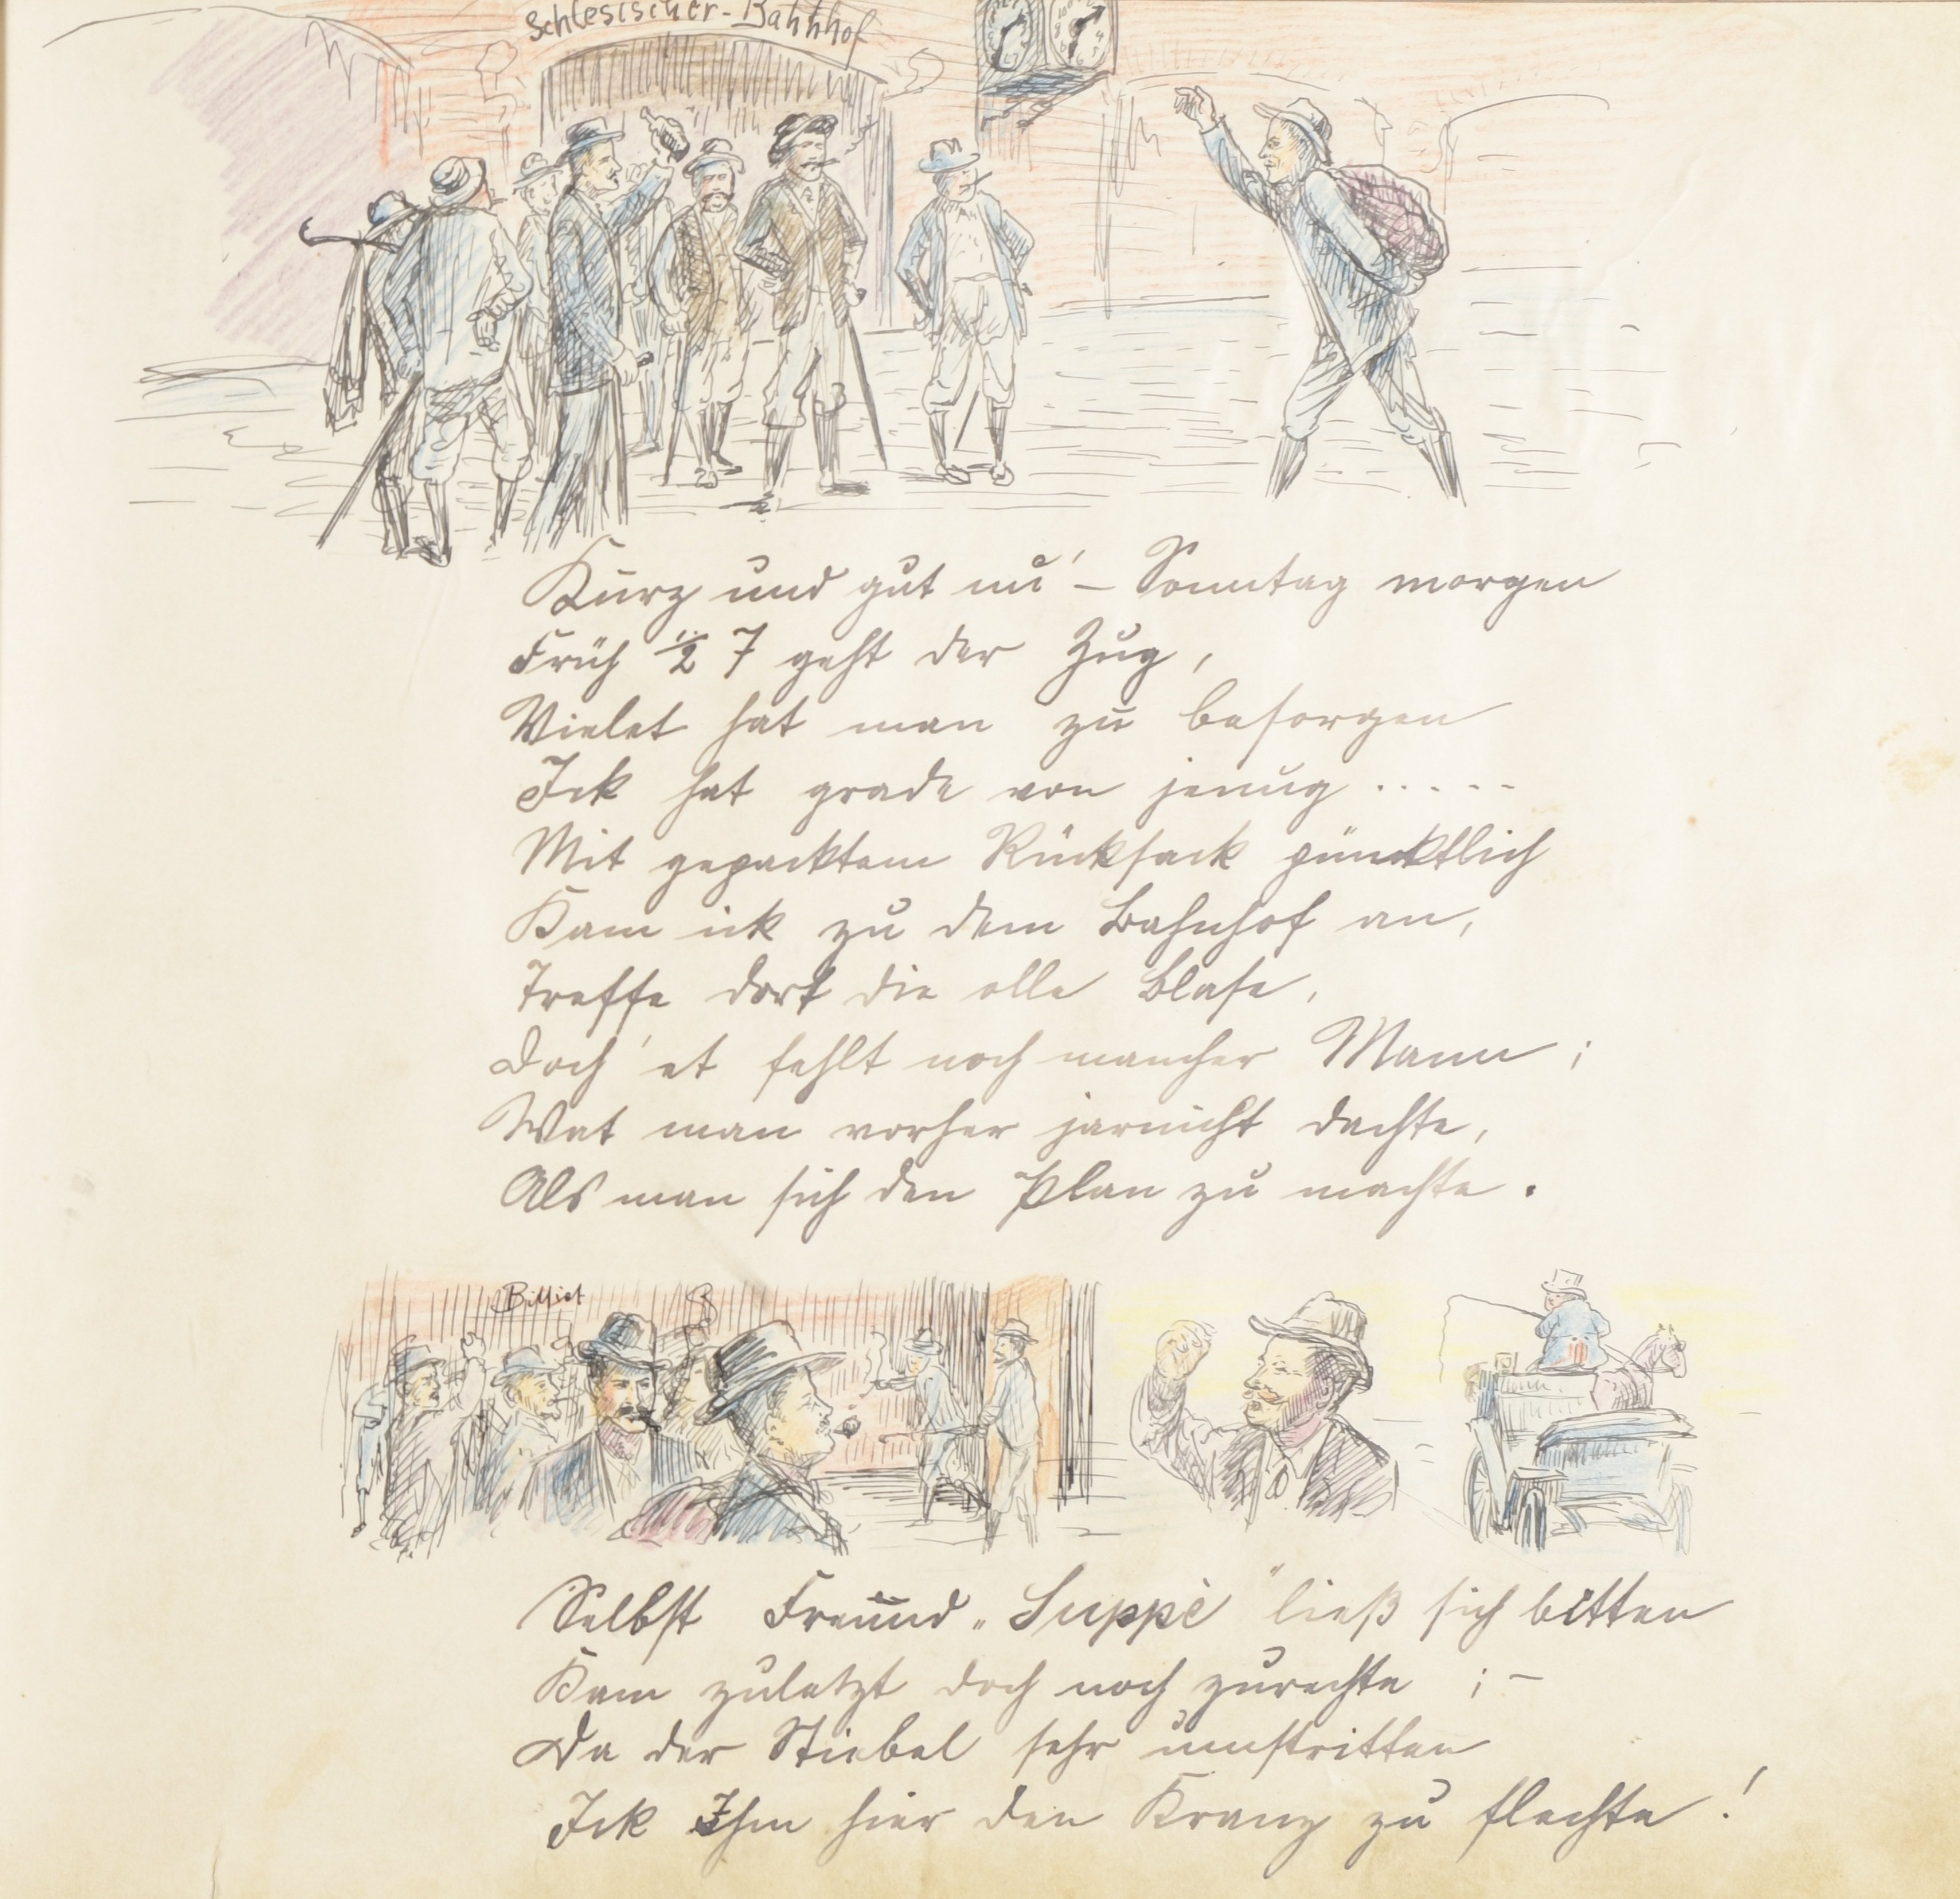 Schlesischer-Bahnhof
Kurz und gut nu' – Sonntag morgen
Früh ½ 7 geht der Zug,
Vielet hat man zu besorgen
Ick hat grade von jenug .....
Mit gepacktem Rucksack pünktlich
Kam ick zu dem Bahnhof an,
Treffe dort die olle Blase,
Doch' et fehlt noch mancher Mann;
Wat man vorher jarnicht dachte,
Als man sich den Plan zu machte.
Billiet
Selbst Freund „Suppè" ließ sich bitten
Kam zuletzt doch noch zurechte ; –
Da der Stiebel sehr umstritten
Ick Ihm hier den Kranz zu flechte!